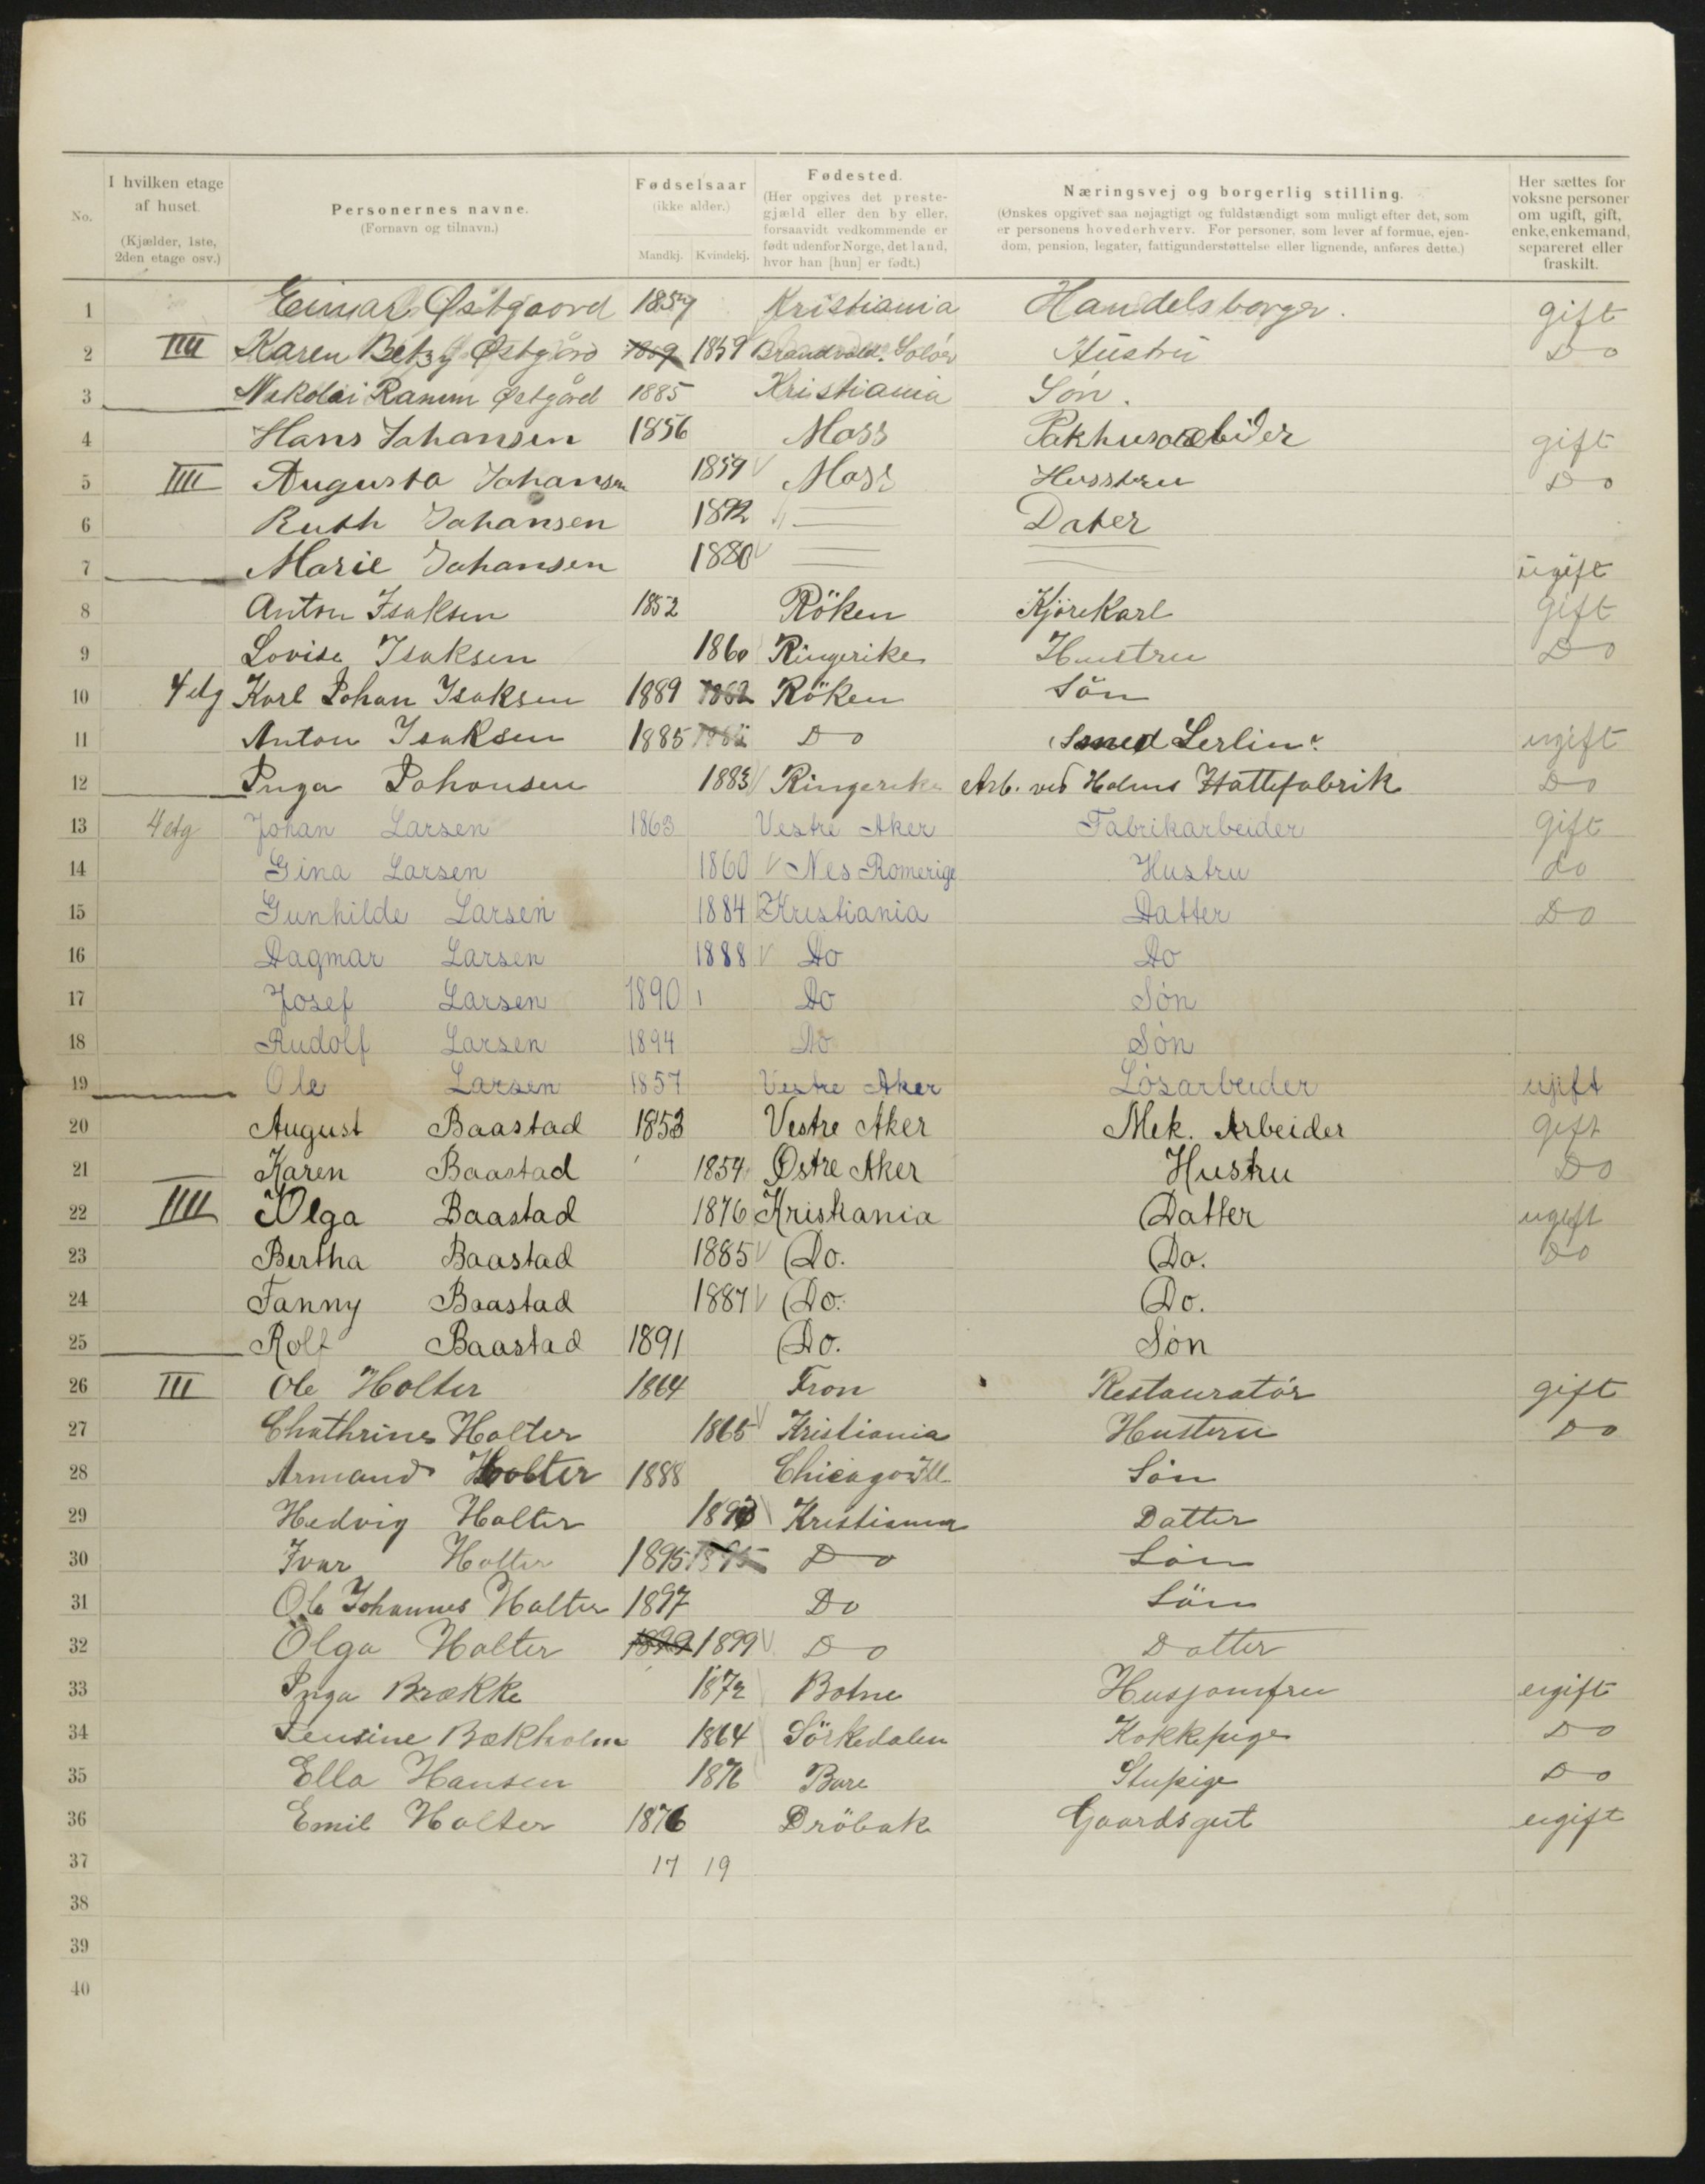 No.
I hvilken etage af huset. (Kjælder, 1ste, 2den etage osv.)
Personernes navne. (Fornavn og tilnavn.)
Fødselsaar (ikke alder.) Mandkj. Kvindekj.
Fødested. (Her opgives det prestegjæld eller den by eller, forsaavidt vedkommende er født udenfor Norge, det land, hvor han [hun] er født.)
Næringsvej og borgerlig stilling. (Ønskes opgivet saa nøjagtigt og fuldstændigt som muligt efter det, som er personens hovederhverv. For personer, som lever af formue, ejendom, pension, legater, fattigunderstøttelse eller lignende, anføres dette.)
Her sættes for voksne personer om ugift, gift, enke, enkemand, separeret eller fraskilt.
1 Einar Østgaard 1857 Kristiania Handelsborger. gift
2 IIII Karen Betzy Østgård 1859 1859 Brandvold. Solör Hustru Do
3 Nikolai Ramm Østgård 1885 Kristiania Sön.
4 Hans Johansen 1856 Moss Pakhusarbider gift
5 IIII Augusta Johansen 1859 Moss Husstru Do
6 Ruth Johansen 1892 Dater
7 Marie Johansen 1880 ugift
8 Anton Isaksen 1852 Röken Kjörekarl gift
9 Lovise Isaksen 1860 Ringerike Hustru Do
10 4 etg Karl Johan Isaksen 1889 Röken Sön
11 Anton Isaksen 1885 Do Smed Lerling ugift
12 Inga Johansen 1883 Ringerike Arb. ved Holms Hattefabrik Do
13 4 etg Johan Larsen 1863 Vestre Aker Fabrikarbeider Gift
14 Gina Larsen 1860 Nes Romerige Hustru do
15 Gunhilde Larsen 1884 Kristiania Datter Do
16 Dagmar Larsen 1888 Do Do
17 Josef Larsen 1890 Do Sön
18 Rudolf Larsen 1894 Do Sön
19 Ole Larsen 1857 Vestre Aker Lösarbeider ugift
20 August Baastad 1853 Vestre Aker Mek. Arbeider Gift
21 Karen Baastad 1854 Østre Aker Hustru Do
22 IIII Olga Baastad 1876 Kristiania Datter ugift
23 Bertha Baastad 1885 Do. Do. Do
24 Fanny Baastad 1887 Do. Do.
25 Rolf Baastad 1891 Do. Sön
26 III Ole Holter 1864 Fron Restauratör gift
27 Chathrine Holter 1865 Kristiania Hustru Do
28 Armand Holter 1888 Chicago Ill. Sön
29 Hedvig Holter 1893 Kristiania Datter
30 Ivar Holter 1895 1895 Do Sön
31 Ole Johannes Holter 1897 Do Sön
32 Olga Holter 1899 1899 Do Datter
33 Inga Brække 1872 Botne Husjomfru ugift
34 Bækholm 1864 Sörkedalen Kokkepige Do
35 Ella Hansen 1876 Bare Stupige Do
36 Emil Holter 1876 Dröbak Gaardsgut ugift
37 17 19
38
39
40